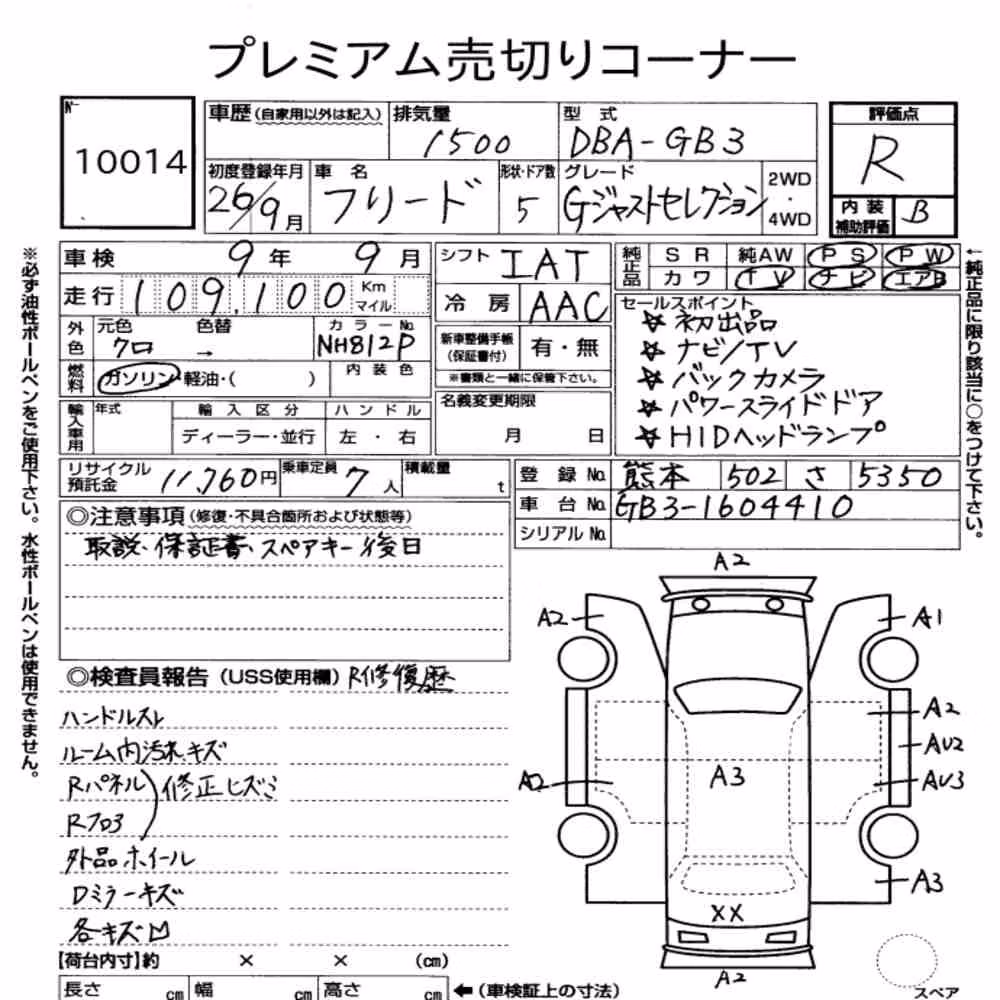 プレミアム売切りコーナー
No.
10014
車歴(自家用以外は記入)
排気量
1500
型式
DBA-GB3
評価点
R
初度登録年月
26/9月
車名
フリード
形状・ドア数
5
グレード
Gジャストセレクション
2WD
・
4WD
内装
補助評価
B
※必ず油性ボールペンをご使用下さい。水性ボールペンは使用できません。
車検 9年 9月
シフト IAT
純正品
SR 純AW PS PW
カワ TV ナビ エアB
←純正品に限り該当に○をつけて下さい。
走行 109,100 Km
マイル
冷房 AAC
セールスポイント
☆初出品
☆ナビ/TV
☆バックカメラ
☆パワースライドドア
☆HIDヘッドランプ
外色
元色 色替
クロ →
カラーNo.
NH812P
新車整備手帳
(保証書付)
有・無
※書類と一緒に保管下さい。
燃料
ガソリン・軽油・( )
内装色
名義変更期限
月 日
輸入車用
年式
輸入区分 ハンドル
ディーラー・並行 左・右
リサイクル
預託金
11,760円
乗車定員
7人
積載量
t
登録No. 熊本 502 さ 5350
車台No. GB3-1604410
シリアルNo.
◎注意事項(修復・不具合箇所および状態等)
取説、保証書、スペアキー後日
◎検査員報告(USS使用欄) R修復歴
ハンドルスレ
ルーム内汚れキズ
Rパネル
Rフロア
修正ヒズミ
外品ホイール
Dミラーキズ
各キズ凹
A2
A2
A1
A2
AU2
A3
A2
AU3
A3
XX
A2
【荷台内寸】約 × × (cm)
長さ cm 幅 cm 高さ cm ←(車検証上の寸法)
スペア